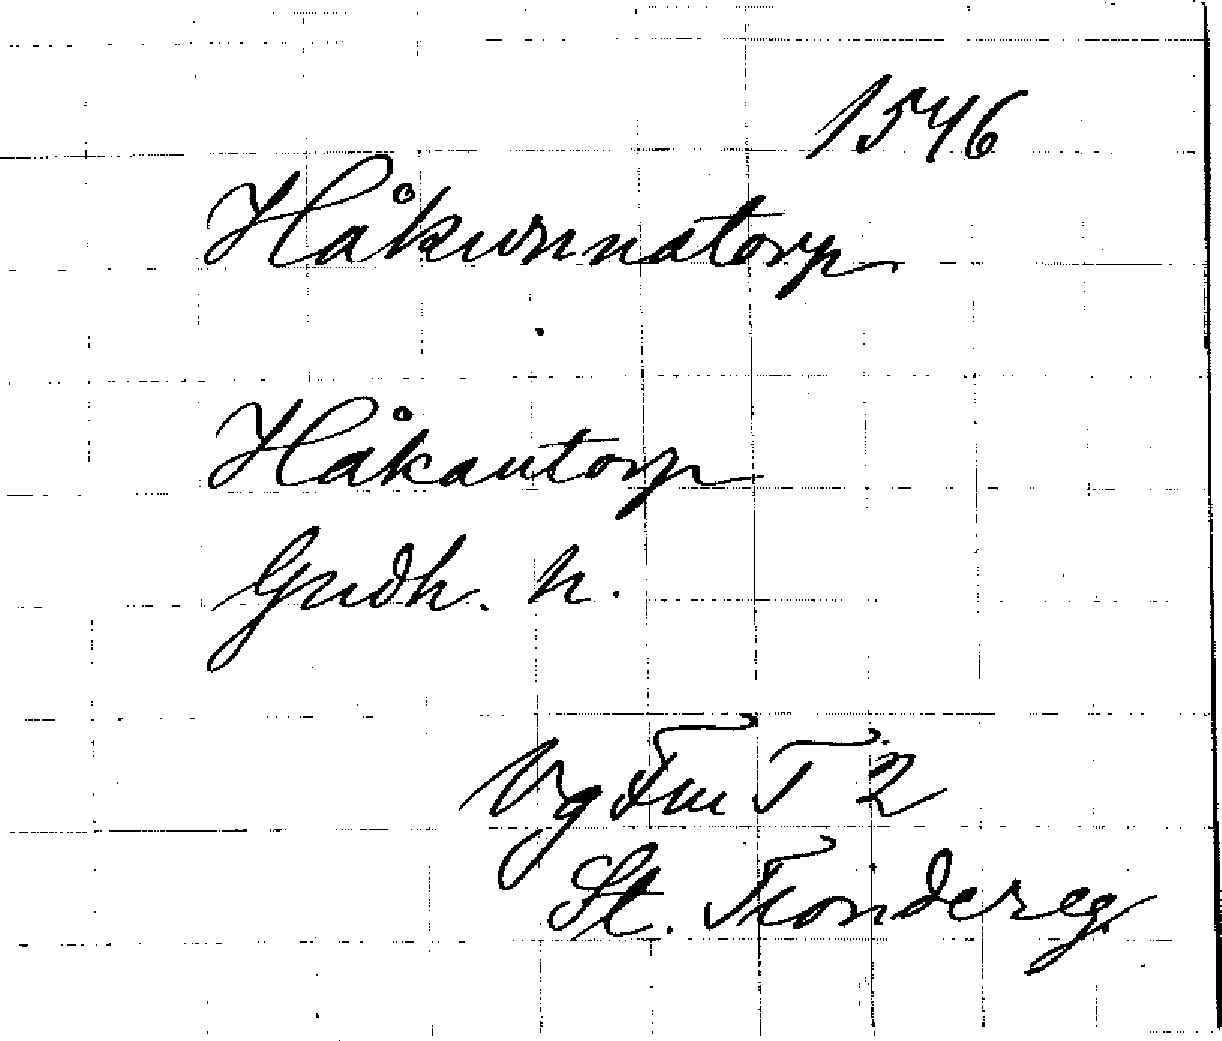 1546
Håkunnatorp
Håkantorp
Gudh. h.
Vg Fm T 2
St. Tiondereg.